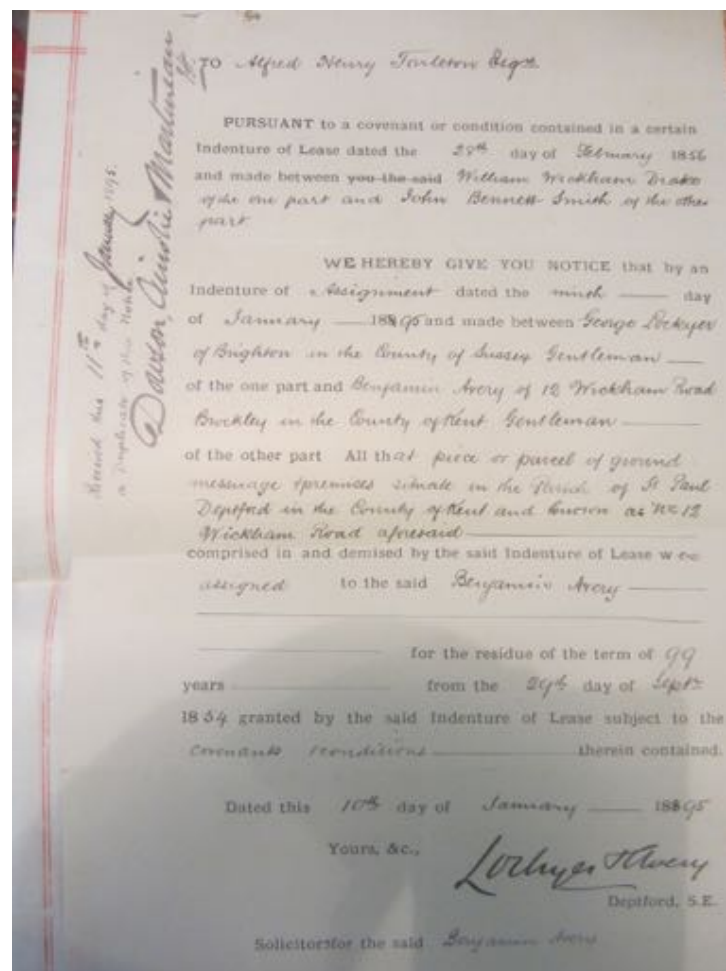 TO Alfred Henry Tarleton Esqre.
PURSUANT to a covenant or condition contained in a certain
Indenture of Lease dated the 28th day of February 1856
and made between you the said William Wickham Drake
of the one part and John Bennett Smith of the other
part
WE HEREBY GIVE YOU NOTICE that by an
Indenture of Assignment dated the ninth day
of January 1895 and made between George Lockyer
of Brighton in the County of Sussex Gentleman
of the one part and Benjamin Avery of 12 Wickham Road
Brockley in the County of Kent Gentleman
of the other part All that piece or parcel of ground
messuage & premises situate in the Parish of St Paul
Deptford in the County of Kent and known as No 12
Wickham Road aforesaid
comprised in and demised by the said Indenture of Lease were
assigned to the said Benjamin Avery
for the residue of the term of 99
years from the 29th day of Septr
1854 granted by the said Indenture of Lease subject to the
covenants & conditions therein contained.
Dated this 10th day of January 1895
Yours, &c.,
Lockyer & Avery
Deptford, S.E.
Solicitors for the said Benjamin Avery
Received this 11th day of January 1895.
a duplicate of this Notice
Dawson, Ainslie & Martineau